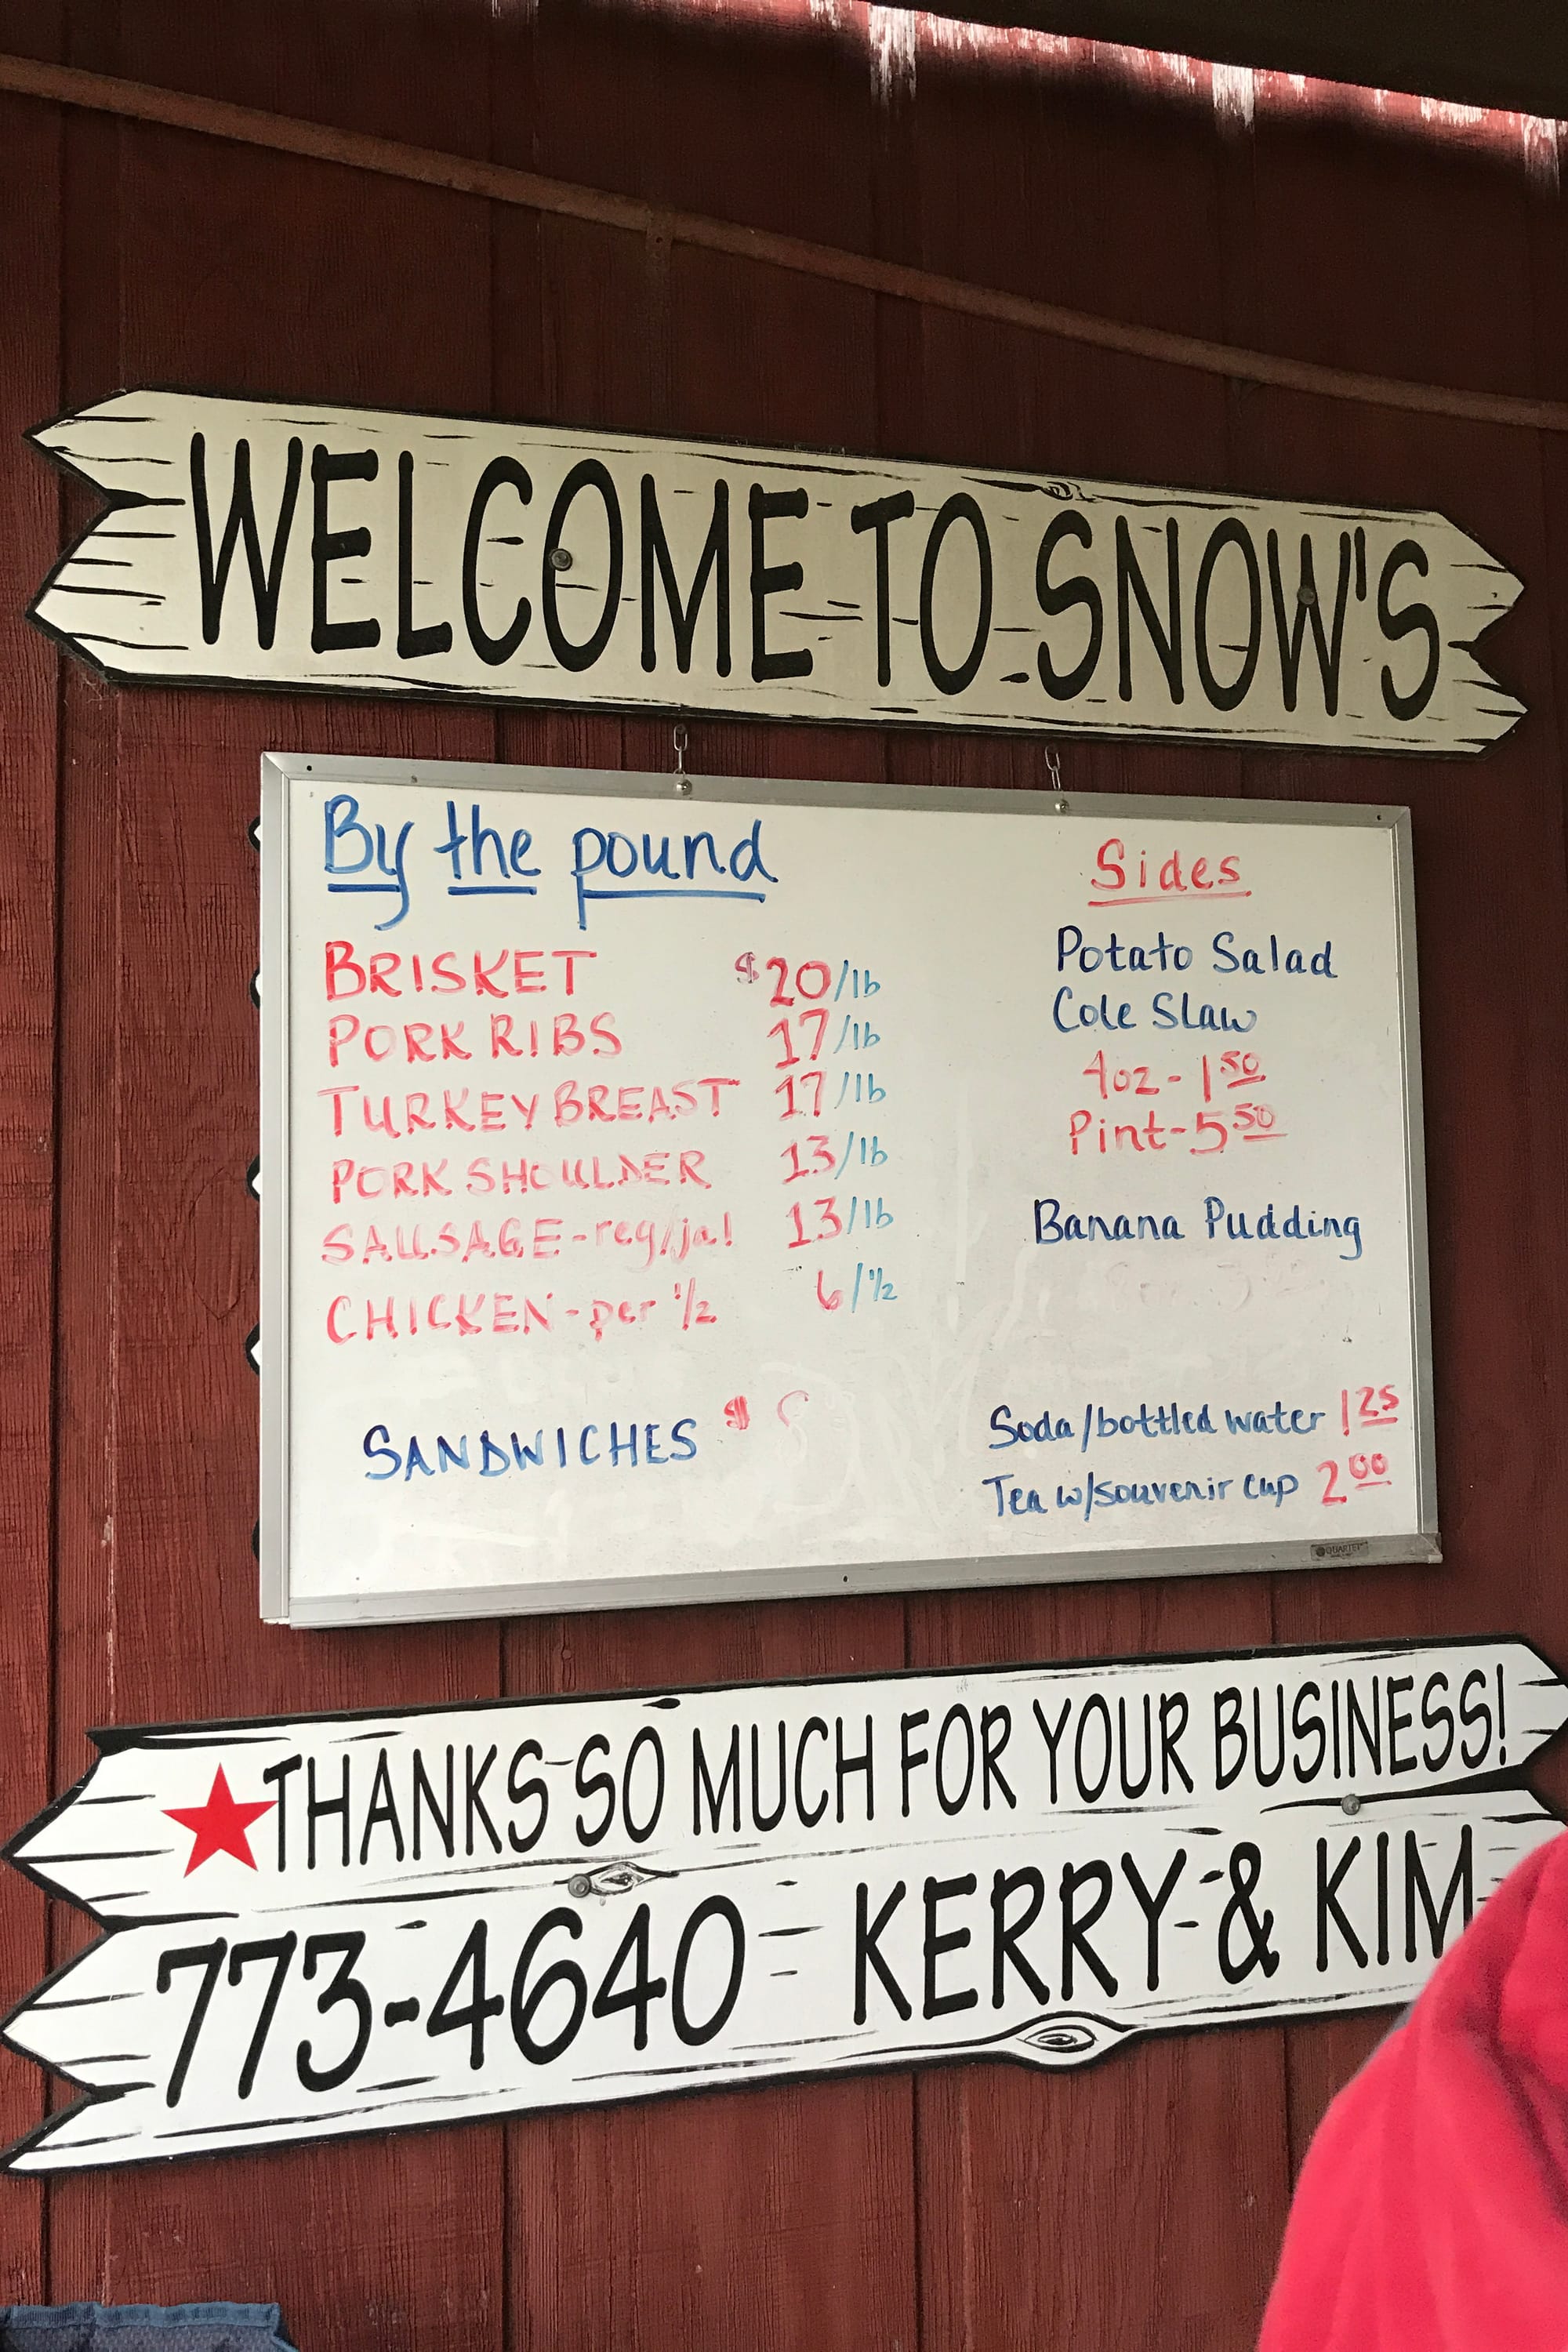 WELCOME TO SNOW'S
By the pound
BRISKET $20/lb
PORK RIBS 17/lb
TURKEY BREAST 17/lb
PORK SHOULDER 13/lb
SAUSAGE-reg/jal 13/lb
CHICKEN-per 1/2 6/1/2
SANDWICHES $
Sides
Potato Salad
Cole Slaw
4oz-1.50
Pint-5.50
Banana Pudding
Soda/bottled water 1.25
Tea w/souvenir cup 2.00
QUARTET
THANKS SO MUCH FOR YOUR BUSINESS!
773-4640 KERRY & KIM